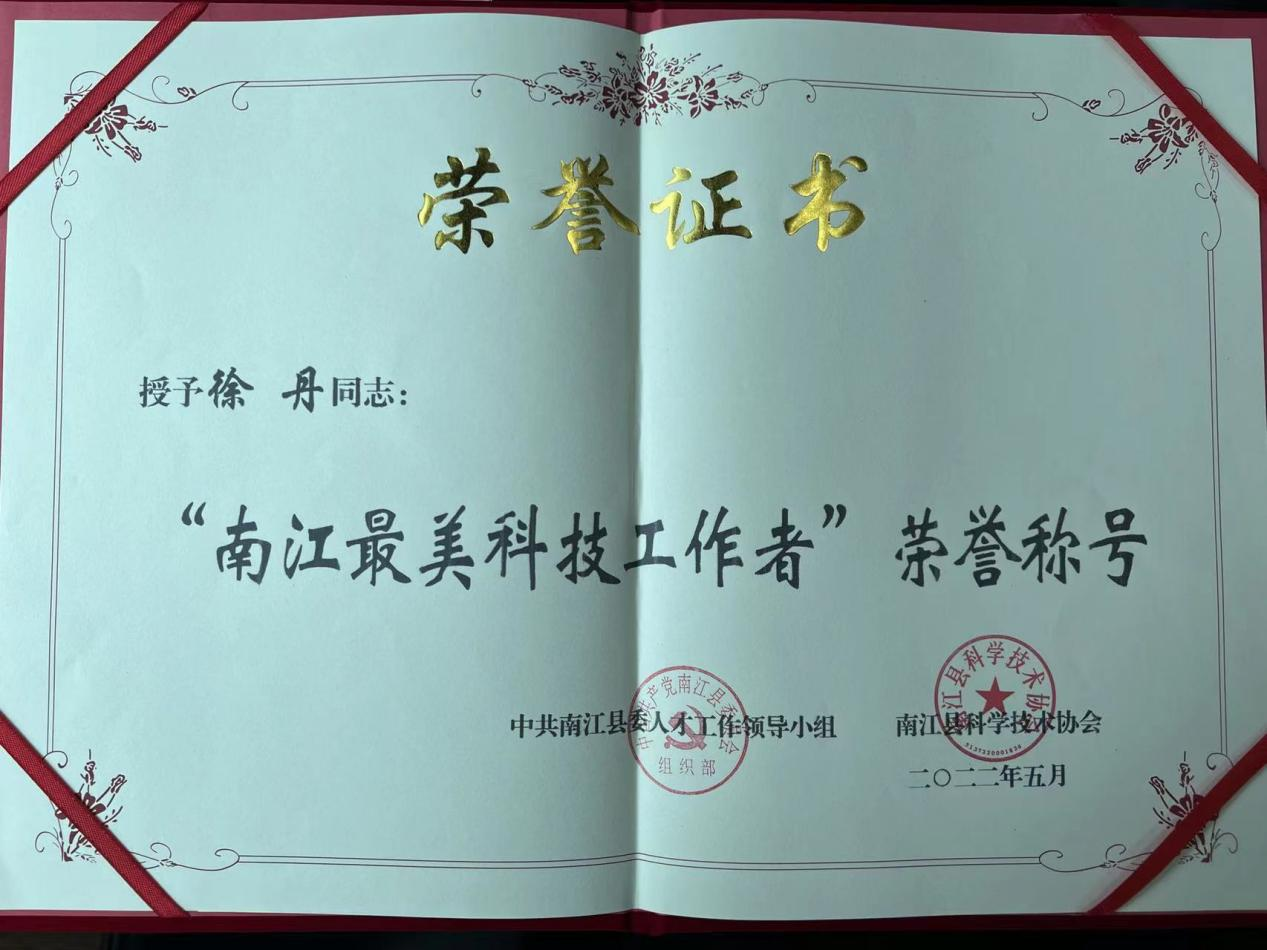 荣誉证书
授予徐 丹同志：
“南江最美科技工作者”荣誉称号
中共南江县委人才工作领导小组 南江县科学技术协会
二〇二二年五月
中国共产党南江县委员会
组织部
南江县科学技术协会